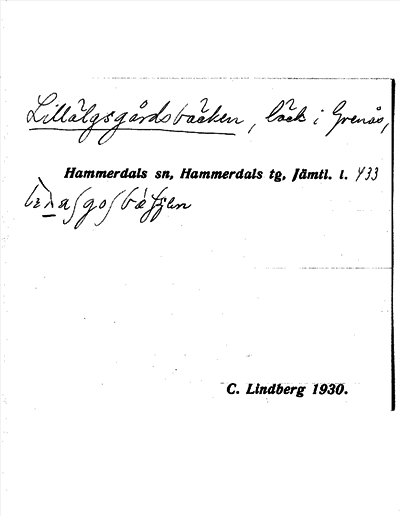 Lillälgsgårdsbäcken, bäck i Grenås,
Hammerdals sn, Hammerdals tg, Jämtl. l. 433
C. Lindberg 1930.